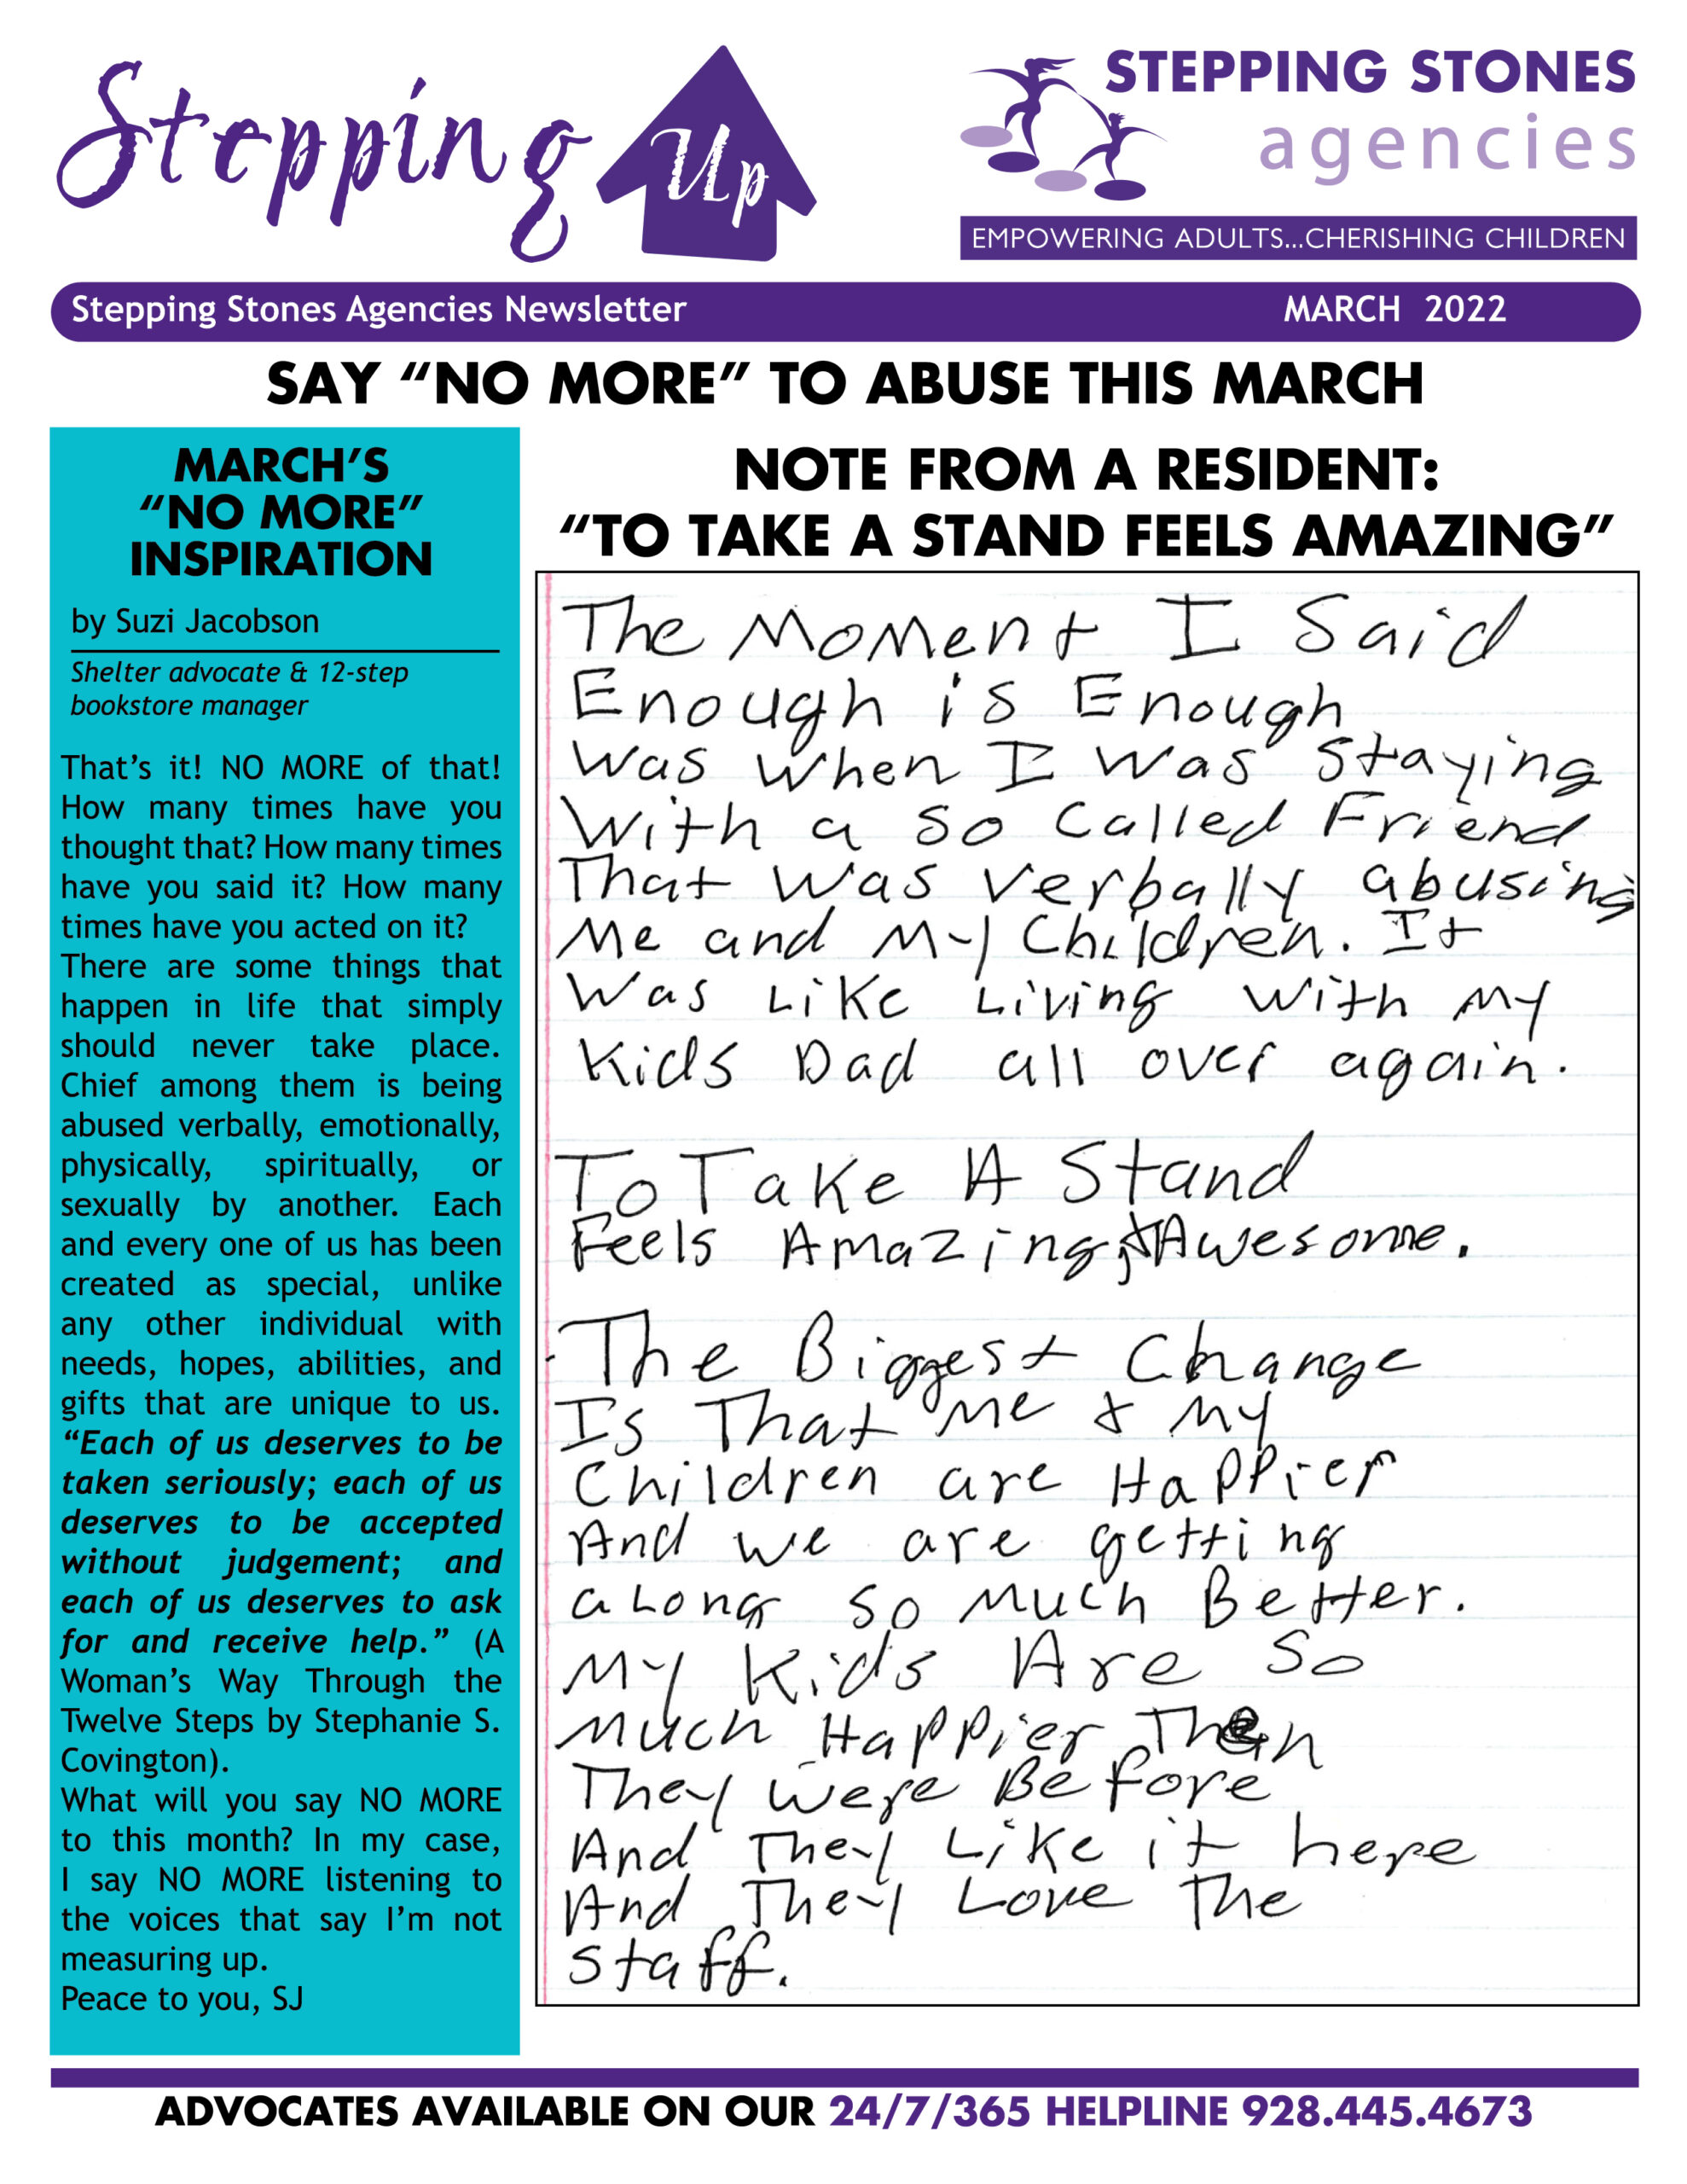 Stepping Up
STEPPING STONES
agencies
EMPOWERING ADULTS...CHERISHING CHILDREN
Stepping Stones Agencies Newsletter MARCH 2022
SAY “NO MORE” TO ABUSE THIS MARCH
MARCH’S
“NO MORE”
INSPIRATION
by Suzi Jacobson
Shelter advocate & 12-step
bookstore manager
That’s it! NO MORE of that!
How many times have you
thought that? How many times
have you said it? How many
times have you acted on it?
There are some things that
happen in life that simply
should never take place.
Chief among them is being
abused verbally, emotionally,
physically, spiritually, or
sexually by another. Each
and every one of us has been
created as special, unlike
any other individual with
needs, hopes, abilities, and
gifts that are unique to us.
“Each of us deserves to be
taken seriously; each of us
deserves to be accepted
without judgement; and
each of us deserves to ask
for and receive help.” (A
Woman’s Way Through the
Twelve Steps by Stephanie S.
Covington).
What will you say NO MORE
to this month? In my case,
I say NO MORE listening to
the voices that say I’m not
measuring up.
Peace to you, SJ
NOTE FROM A RESIDENT:
“TO TAKE A STAND FEELS AMAZING”
The Moment I Said
Enough is Enough
Was when I was staying
With a so called Friend
That was verbally abusing
Me and My Children. It
Was Like Living with my
Kids Dad all over again.
To Take A Stand
Feels Amazing, & Awesome.
The Biggest Change
Is That me & my
Children are Happier
And we are getting
aLong so Much Better.
My Kids Are So
Much Happier Then
They were Before
And They Like it here
And They Love The
staff.
ADVOCATES AVAILABLE ON OUR 24/7/365 HELPLINE 928.445.4673